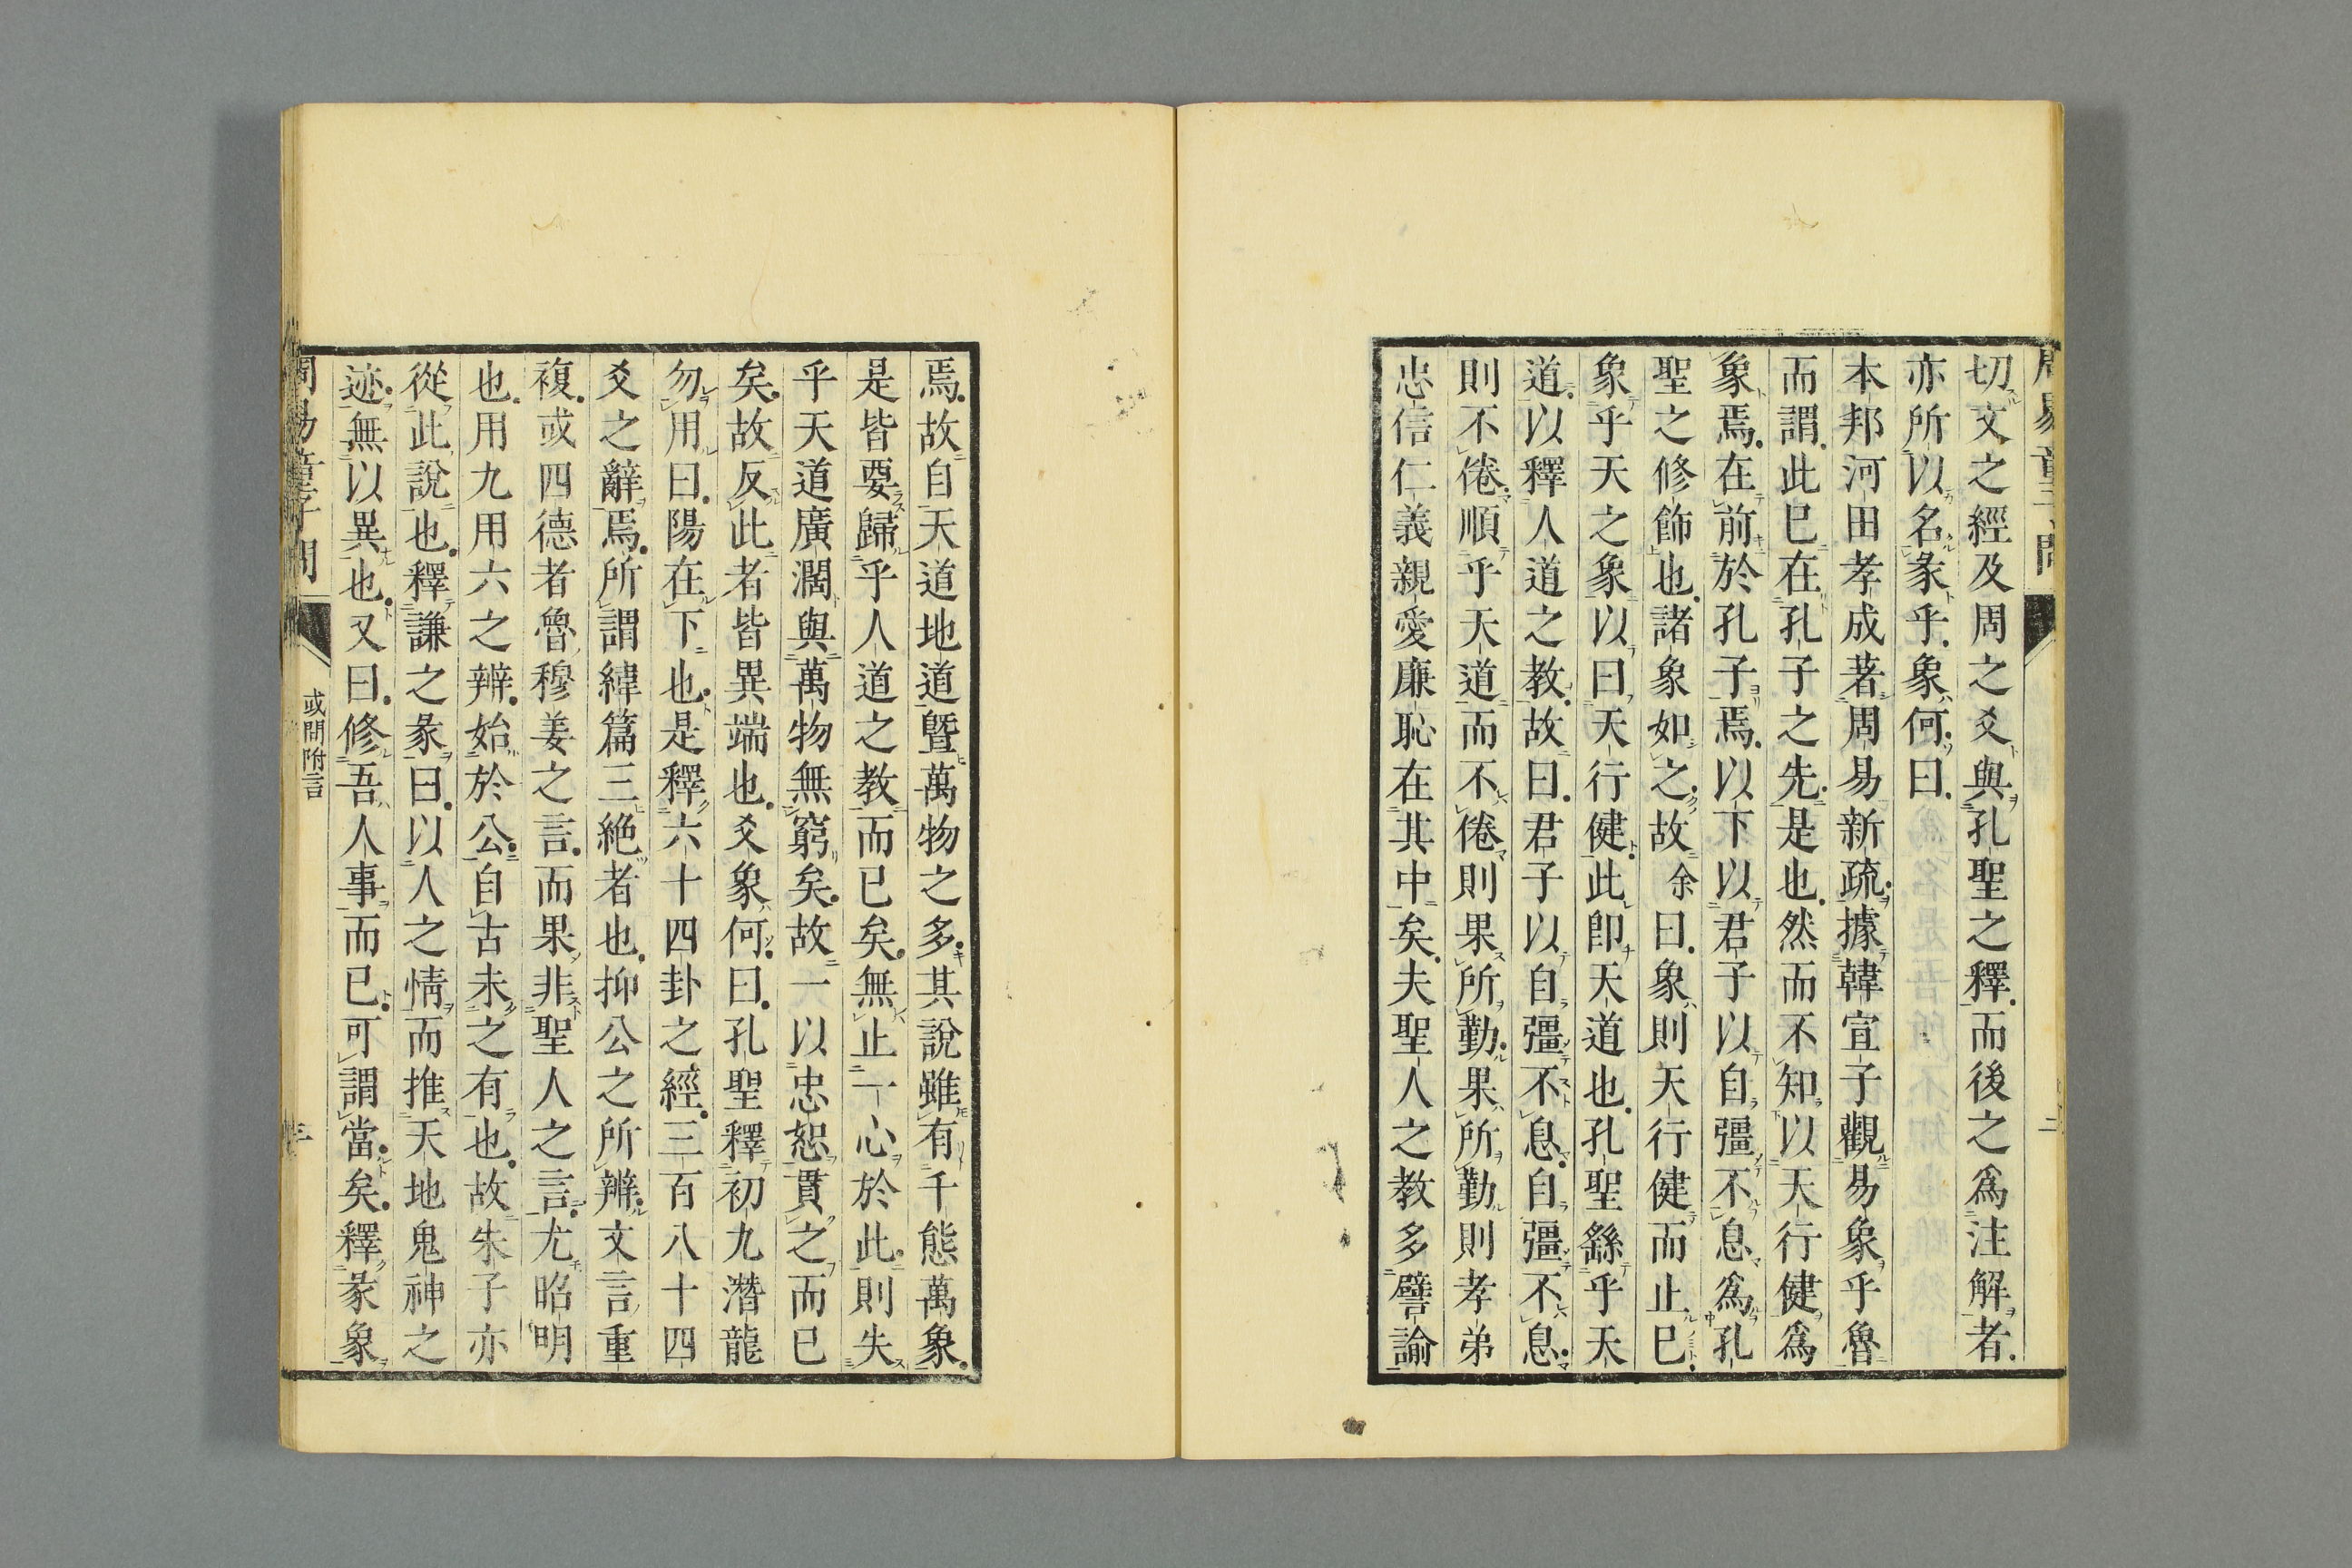 周易童子問 二
切文之經及周之爻與孔聖之釋而後之爲注解者
亦所以名彖乎象何曰
本邦河田孝成著周易新疏據韓宣子觀易象乎魯
而謂此已在孔子之先是也然而不知以天行健爲
象焉在前於孔子焉以下以君子以自彊不息爲孔
聖之修飾也諸象如之故余曰象則天行健而止已
象乎天之象以曰天行健此即天道也孔聖繇乎天
道以釋人道之教故曰君子以自彊不息自彊不息
則不倦順乎天道而不倦則果所勤果所勤則孝弟
忠信仁義親愛廉恥在其中矣夫聖人之教多譬諭
焉故自天道地道曁萬物之多其說雖有千態萬象
是皆要歸乎人道之教而已矣無止一心於此則失
乎天道廣濶與萬物無窮矣故一以忠恕貫之而已
矣故反此者皆異端也爻象何曰孔聖釋初九潛龍
勿用曰陽在下也是釋六十四卦之經三百八十四
爻之辭焉所謂緯篇三絕者也抑公之所辨文言重
複或四德者魯穆姜之言而果非聖人之言尤昭明
也用九用六之辨始於公自古未之有也故朱子亦
從此說也釋謙之彖曰以人之情而推天地鬼神之
迹無以異也又曰修吾人事而已可謂當矣釋彖象
周易童子問 或問附言 三